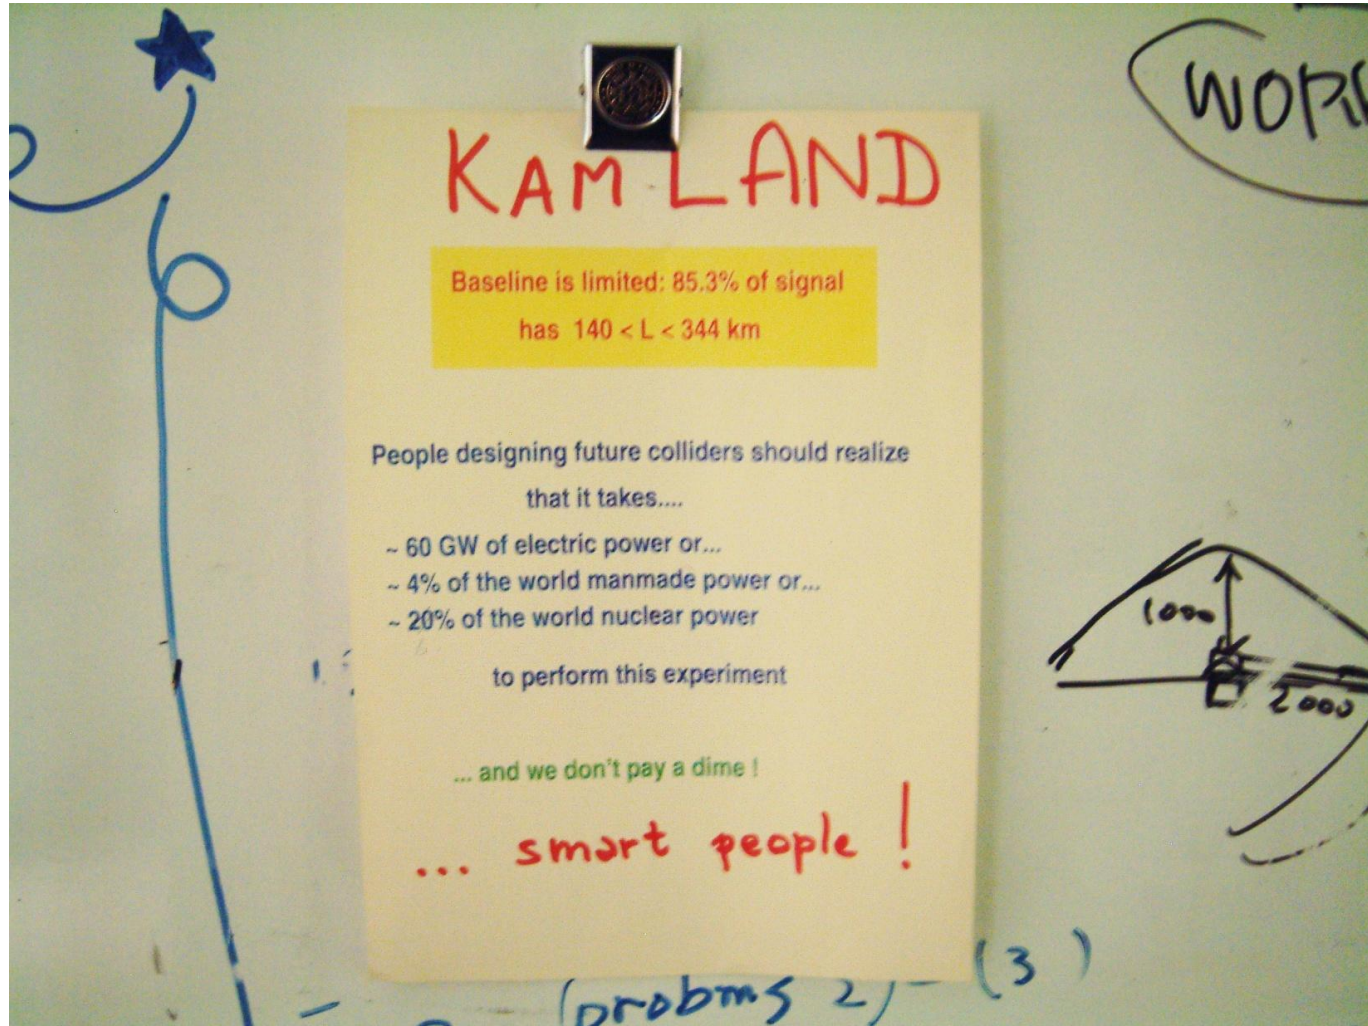 KAMLAND
Baseline is limited: 85.3% of signal
has 140 < L < 344 km
People designing future colliders should realize
that it takes....
~ 60 GW of electric power or...
~ 4% of the world manmade power or...
~ 20% of the world nuclear power
to perform this experiment
... and we don't pay a dime !
... smart people !
1000
2000
2) - (3 )